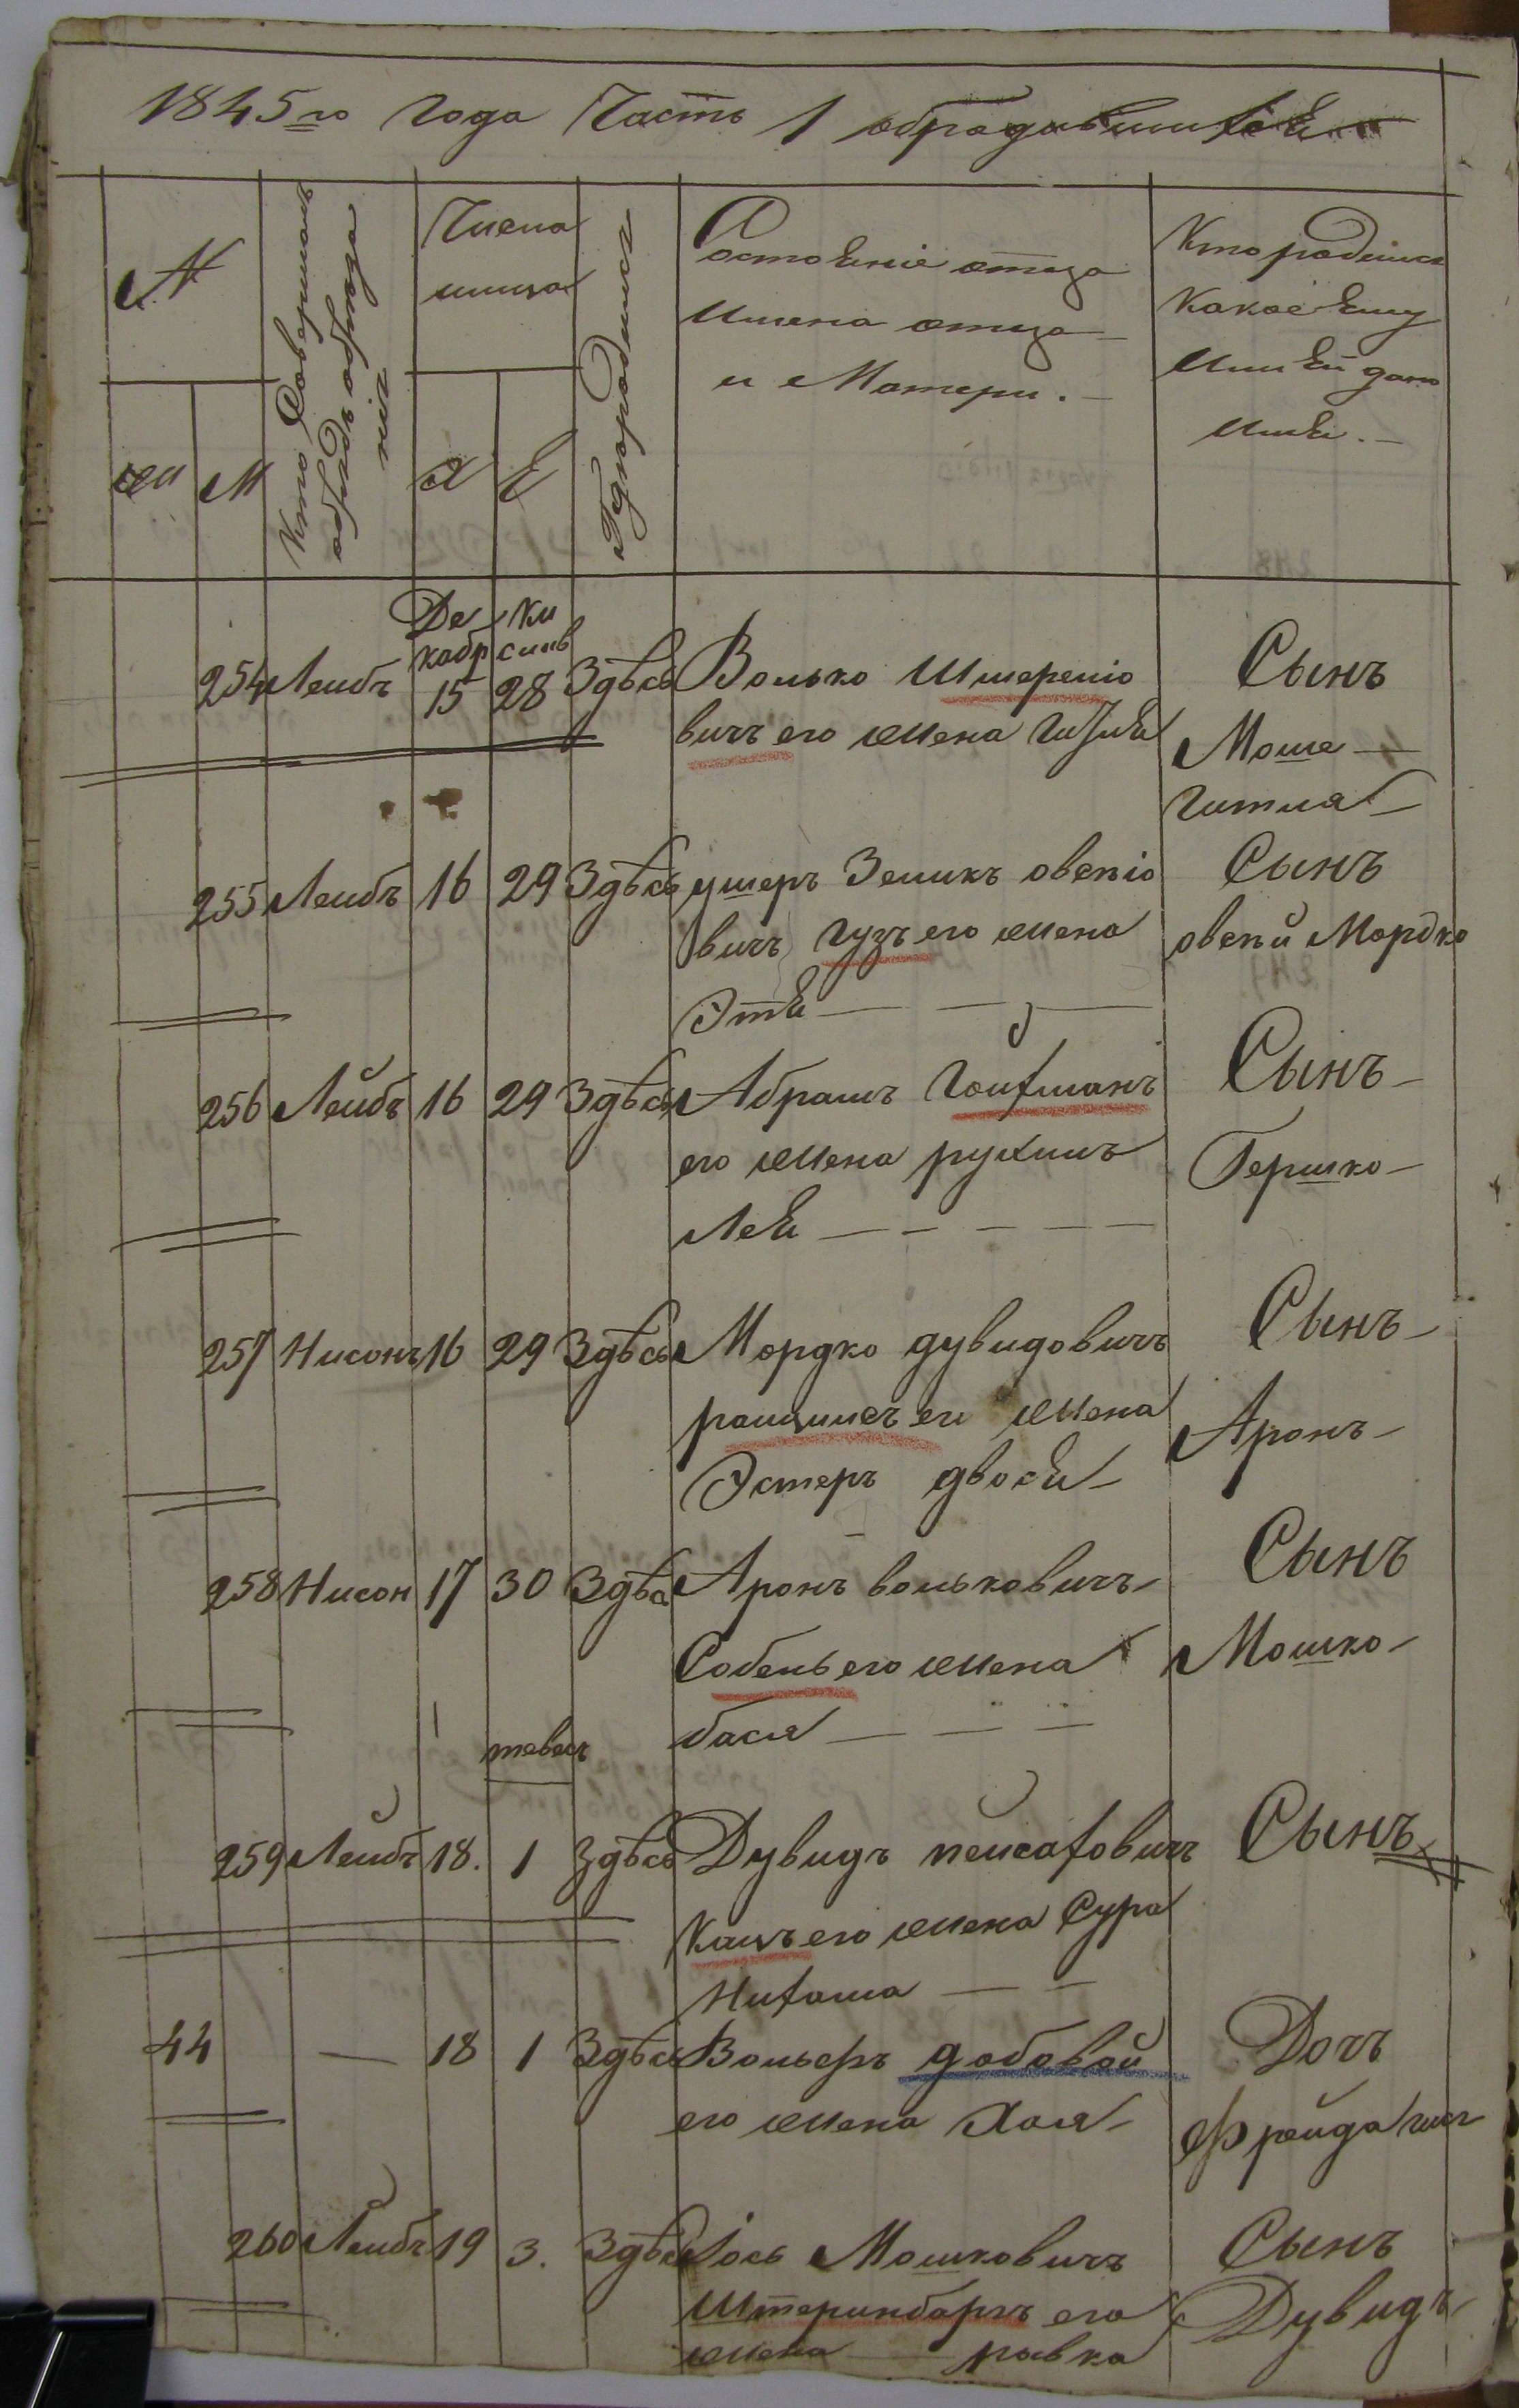 1845го года Часть 1 обрадавшихся
№
Кто Совершалъ
обрядъ обреза
нія
Числа
мица
Гдѣ родился
Состояніе отца
Имена отца
и Матери.
Кто родился
Какое ему
или ей дано
имя.
же М
Х Е
Де Ки
кабр слив
254 Леибъ 15 28 Здѣсь Волько Шмерелио
вичъ его жена
Сынъ
Моше
Гитля
255 Леибъ 16 29 Здѣсь ушеръ Зеликъ овеню
вичъ гузъ его жена
Этя
Сынъ
Мордко
256 Лейбъ 16 29 Здѣсь Абрамъ Гоифманъ
его жена рухлиъ
Лея
Сынъ
Гершко
257 Нисонъ 16 29 Здѣсь Мордко дувидовичъ
его жена
Эстеръ двося
Сынъ
Аронъ
258 Нисон 17 30 Здѣс Аронъ вольковичъ
Собель его жена
бася
Сынъ
Мошко
тевесъ
259 Лейбъ 18. 1 Здѣсь Дувидъ пейсаховичъ
Кацъ его жена Сура
Нихама
Сынъ
44 — 18 1 Здѣсь Вольфъ добовой
его жена Хая
Дочъ
Фрейда
260 Леибъ 19 3. Здѣсь Іось Мошковичъ
Штеринбаргъ его
жена ривка
Сынъ
Дувидъ